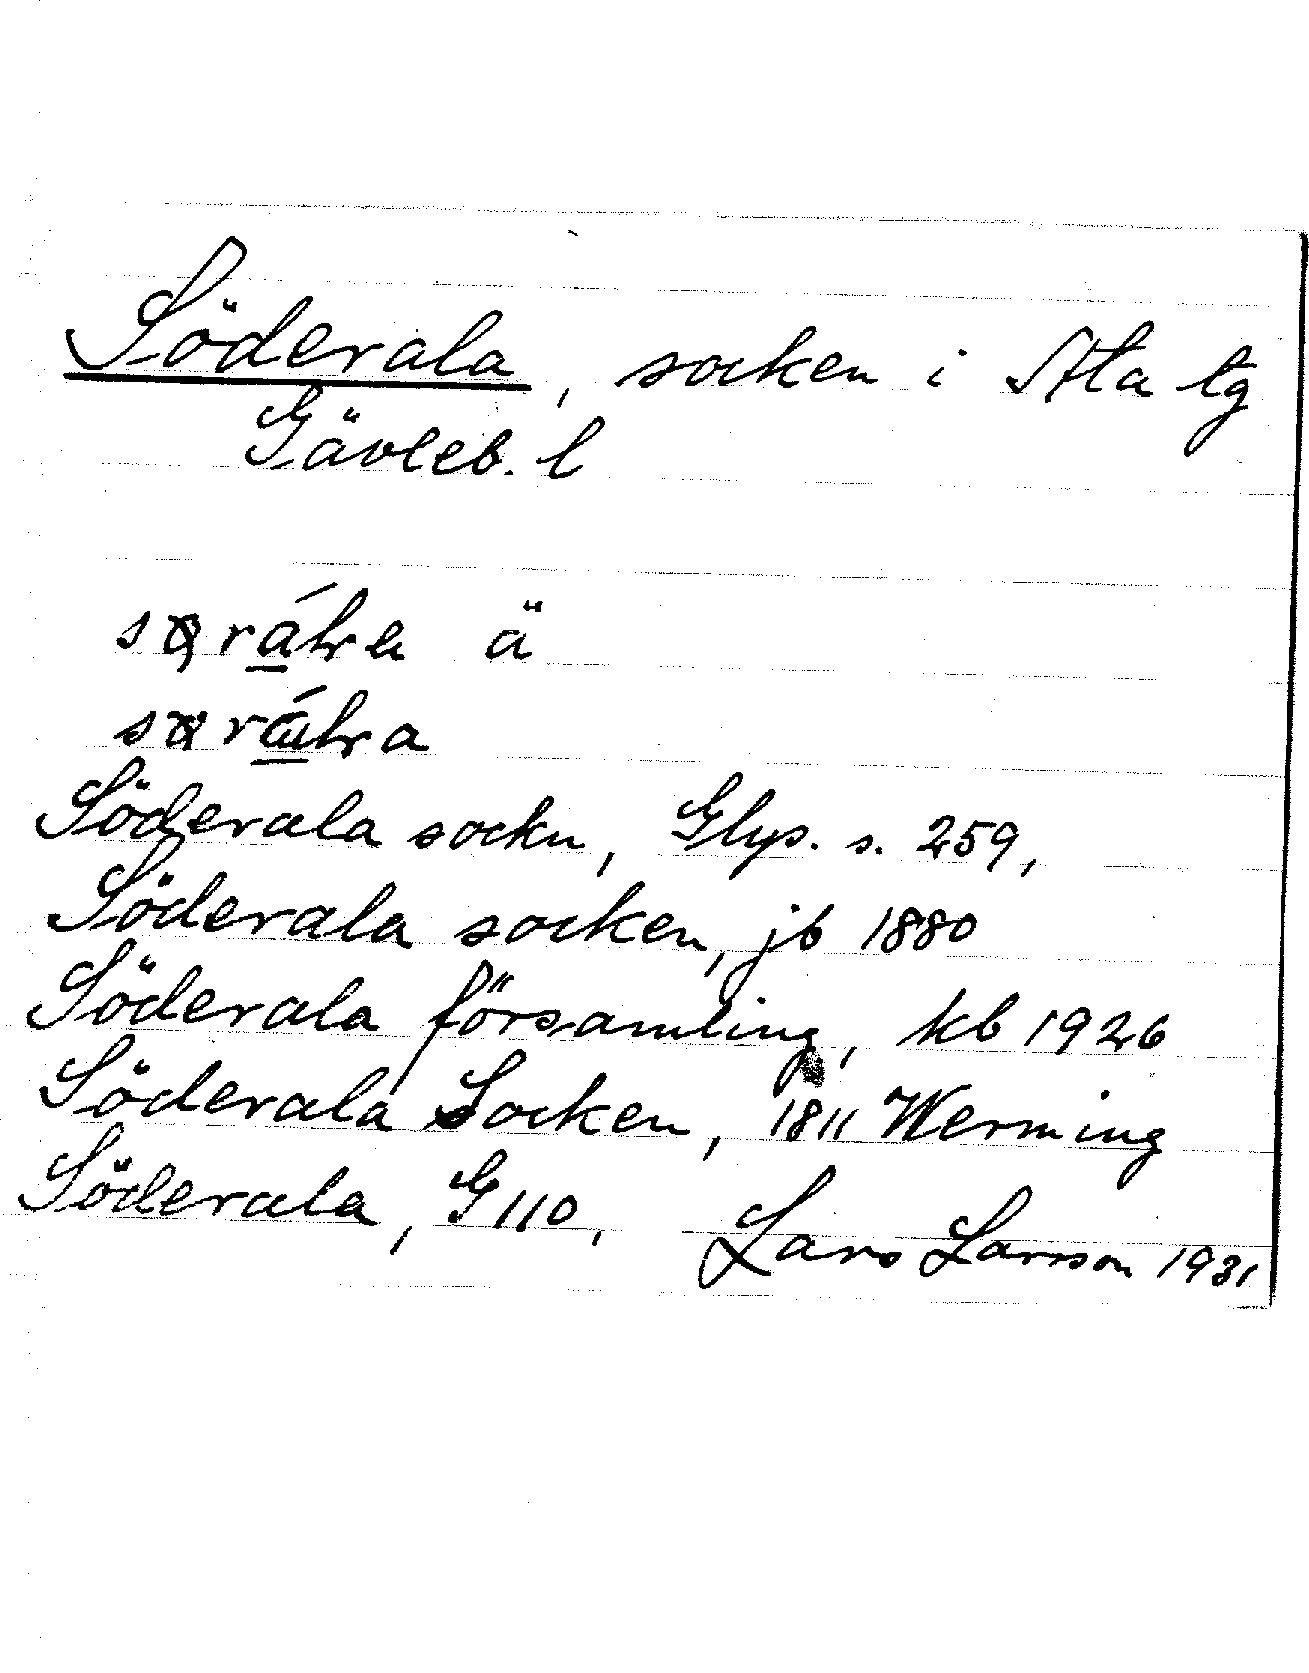 Söderala, socken i Ala tg
Gävleb. l
ä
Söderala sockn, Glys. s. 259,
Söderala socken, jb 1880
Söderala församling, kb 1926
Söderala Socken, 1811 Werming
Söderala, G110,
Lars Larsson 1931